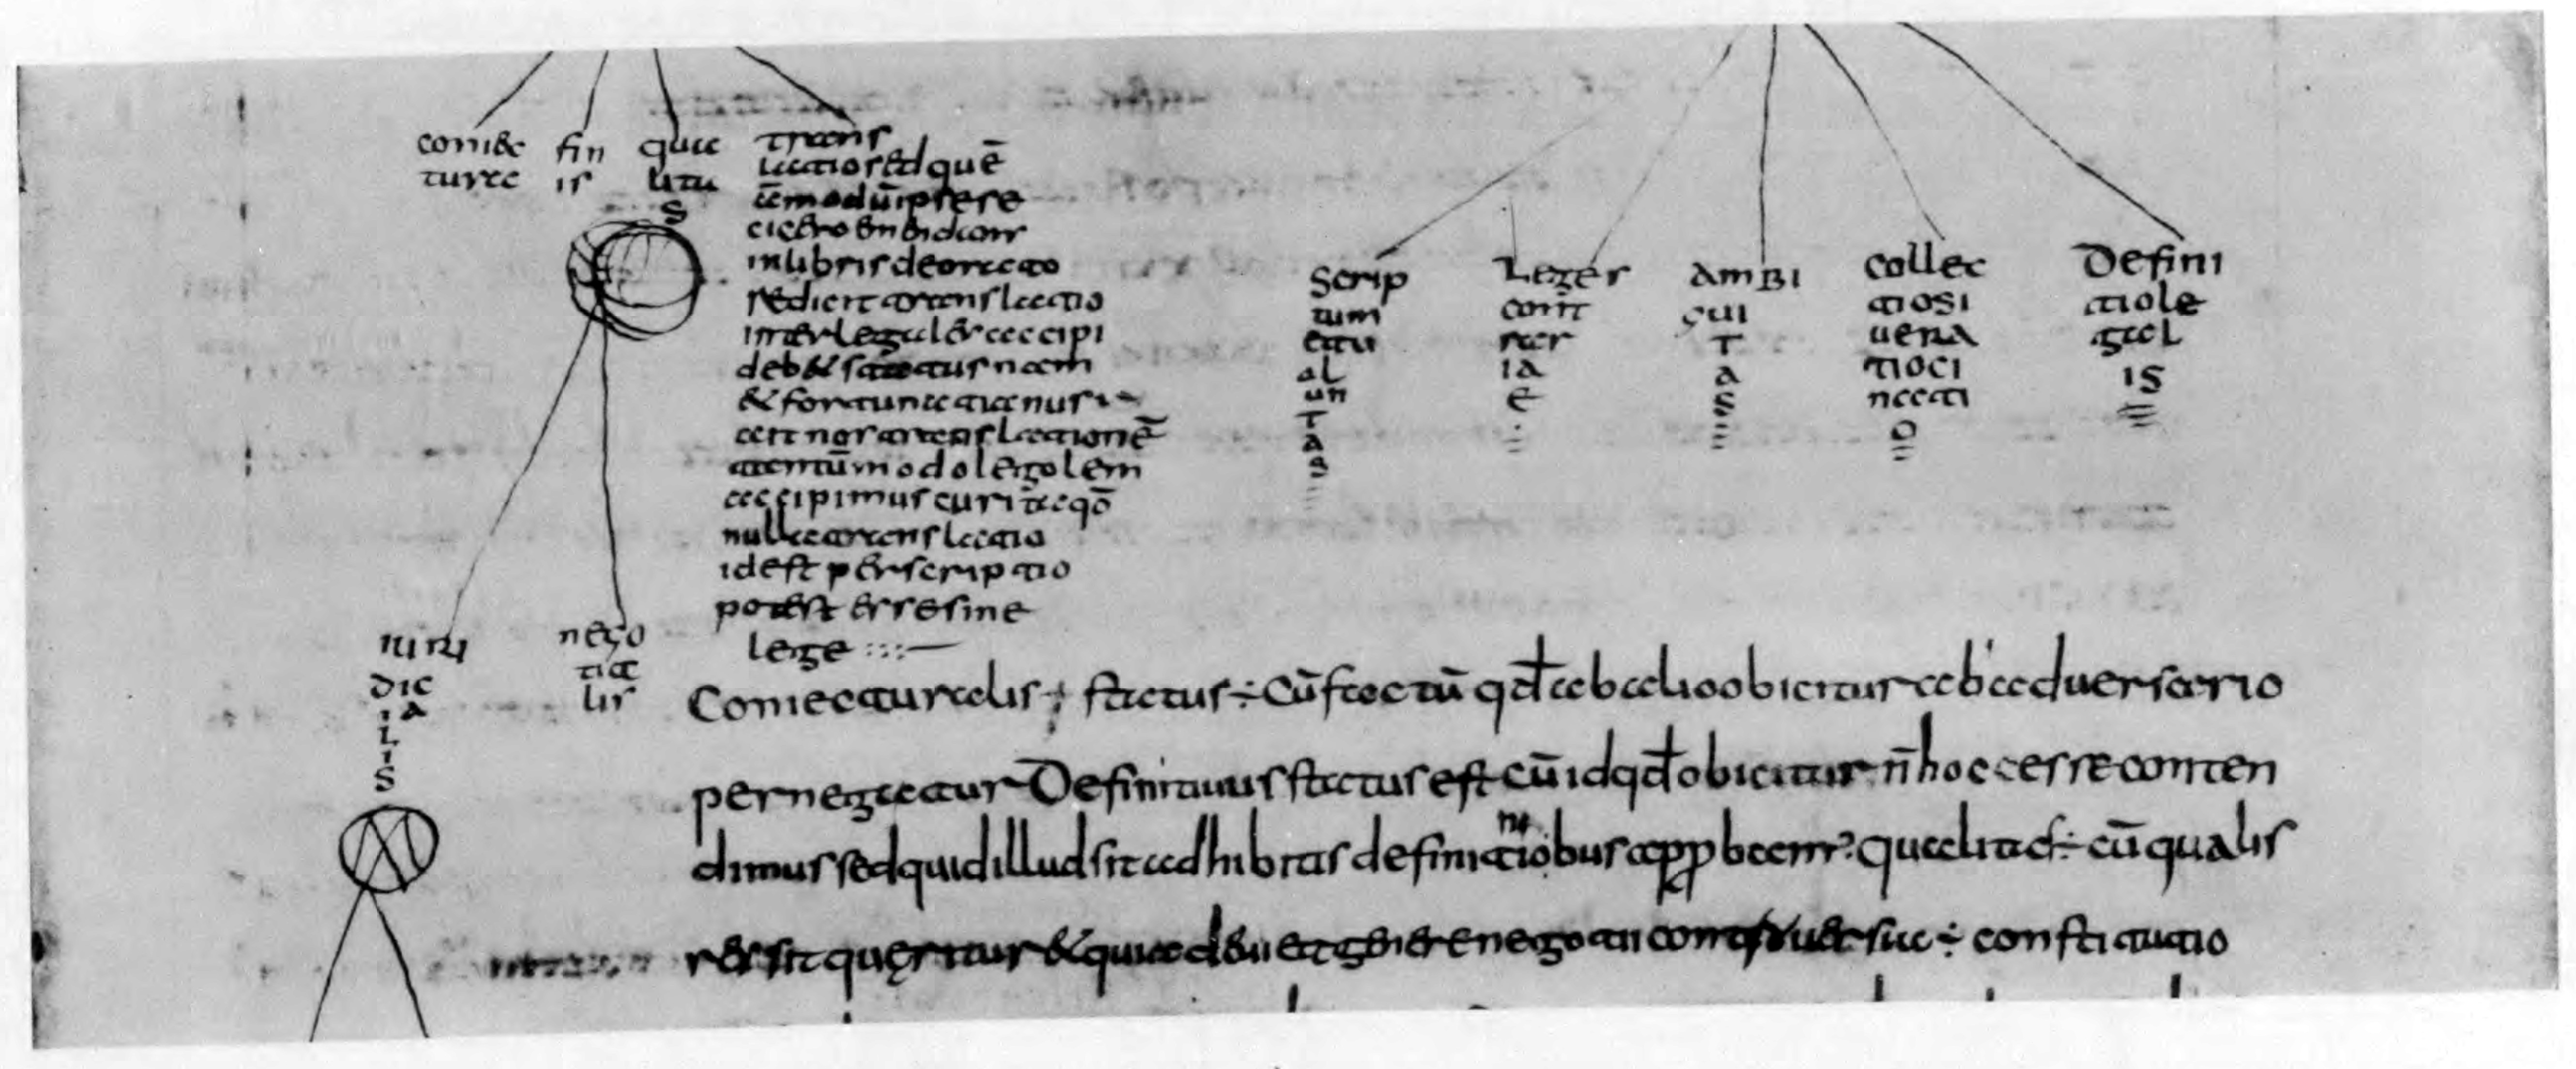 coniec
turae
fin
is
qua
lita
s
trans
latio sed quē
ammodū ipse re
cicero emendans
in libris de orato
re dicit translatio
inter legales accipi
debet status nam
& fortunatianus
ait nos translationē
tantūmodo legalem
accipimus cur ita qō
nulla translatio
id est perscriptio
potest esse sine
lege
iuri
dic
ia
L
I
S
nego
tia
lis
Scrip
tum
etu
ol
un
T
a
s
Leges
cont
rar
ia
e
AmBI
gui
T
a
S
collec
tiosi
uera
tioci
nati
o
Defini
tiole
gal
IS
Coniecturalis ÷ status ÷ Cū factū qđ ab alio obicitur ab aduersario
pernegatur Definitiuus status est cū id qđ obicitur n̄ hoc esse conten
dimus sed quid illud sit adhibitis definitionibus app bam? qualitas ÷ cū qualis
res sit queritur & quia de ui et genere negotii controuersia ÷ constitutio